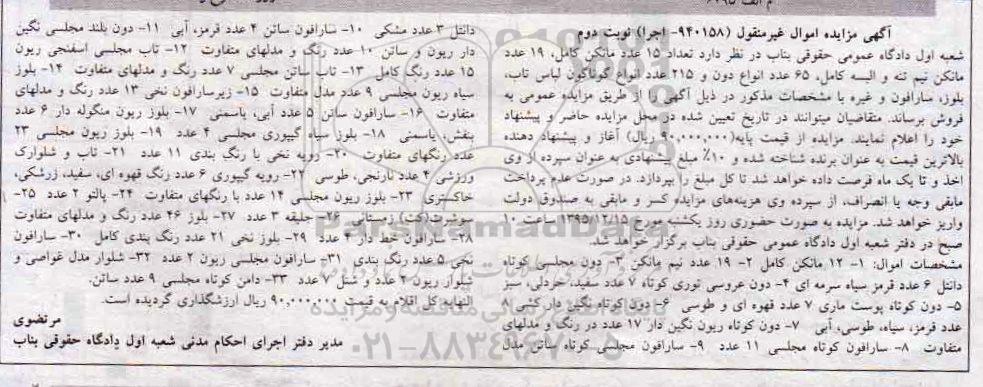 آگهی مزایده اموال غیرمنقول (۹۴۰۱۵۸- اجرا) نوبت دوم
شعبه اول دادگاه عمومی حقوقی بناب در نظر دارد تعداد ۱۵ عدد مانکن کامل، ۱۹ عدد
مانکن نیم تنه و البسه کامل، ۶۵ عدد انواع دون و ۲۱۵ عدد انواع گوناگون لباس تاب،
بلوز، سارافون و غیره با مشخصات مذکور در ذیل آگهی را از طریق مزایده عمومی به
فروش برساند. متقاضیان میتوانند در تاریخ تعیین شده در محل مزایده حاضر و پیشنهاد
خود را اعلام نمایند. مزایده از قیمت پایه(۹۰,۰۰۰,۰۰۰ ریال) آغاز و پیشنهاد دهنده
بالاترین قیمت به عنوان برنده شناخته شده و ۱۰٪ مبلغ پیشنهادی به عنوان سپرده از وی
اخذ و تا یک ماه فرصت داده خواهد شد تا کل مبلغ را بپردازد. در صورت عدم پرداخت
مابقی وجه یا انصراف، از سپرده وی هزینه‌های مزایده کسر و مابقی به صندوق دولت
واریز خواهد شد. مزایده به صورت حضوری روز یکشنبه مورخ ۱۳۹۵/۱۲/۱۵ ساعت ۱۰
صبح در دفتر شعبه اول دادگاه عمومی حقوقی بناب برگزار خواهد شد.
مشخصات اموال: ۱- ۱۲ مانکن کامل ۲- ۱۹ عدد نیم مانکن ۳- دون مجلسی کوتاه
دانتل ۶ عدد قرمز سیاه سرمه ای ۴- دون عروسی توری کوتاه ۷ عدد سفید، خردلی، سبز
۵- دون کوتاه پوست ماری ۷ عدد قهوه ای و طوسی ۶- دون کوتاه نگین دار کشی ۸
عدد قرمز، سیاه، طوسی، آبی ۷- دون کوتاه ریون نگین دار ۱۷ عدد در رنگ و مدلهای
متفاوت ۸- سارافون کوتاه مجلسی ۱۱ عدد ۹- سارافون مجلسی کوتاه ساتن مدل
دانتل ۳ عدد مشکی ۱۰- سارافون ساتن ۴ عدد قرمز، آبی ۱۱- دون بلند مجلسی نگین
دار ریون و ساتن ۱۰ عدد رنگ و مدلهای متفاوت ۱۲- تاب مجلسی اسفنجی ریون
۱۵ عدد رنگ کامل ۱۳- تاب ساتن مجلسی ۷ عدد رنگ و مدلهای متفاوت ۱۴- بلوز
سیاه ریون مجلسی ۹ عدد مدل متفاوت ۱۵- زیرسارافون نخی ۱۳ عدد رنگ و مدلهای
متفاوت ۱۶- سارافون ساتن ۵ عدد آبی، یاسمنی ۱۷- بلوز ریون منگوله دار ۶ عدد
بنفش، یاسمنی ۱۸- بلوز سیاه گیپوری مجلسی ۴ عدد ۱۹- بلوز ریون مجلسی ۲۳
عدد رنگهای متفاوت ۲۰- رویه نخی با رنگ بندی ۱۱ عدد ۲۱- تاب و شلوارک
ورزشی ۴ عدد نارنجی، طوسی ۲۲- رویه گیپوری ۶ عدد رنگ قهوه ای، سفید، زرشکی،
خاکستری ۲۳- بلوز ریون مجلسی ۱۴ عدد با رنگهای متفاوت ۲۴- پالتو ۲ عدد ۲۵-
سوشرت(کت) زمستانی ۲۶- جلیقه ۳ عدد ۲۷- بلوز ۴۶ عدد رنگ و مدلهای متفاوت
۲۸- سارافون خط دار ۴ عدد ۲۹- بلوز نخی ۲۱ عدد رنگ بندی کامل ۳۰- سارافون
نخی ۵ عدد رنگ بندی ۳۱- سارافون مجلسی ریون ۲ عدد ۳۲- شلوار مدل غواصی و
شلوار ریون ۲ عدد و شنل ۷ عدد ۳۳- دامن کوتاه مجلسی ۹ عدد ساتن.
النهایه کل اقلام به قیمت ۹۰,۰۰۰,۰۰۰ ریال ارزشگذاری گردیده است.
مرتضوی
مدیر دفتر اجرای احکام مدنی شعبه اول دادگاه حقوقی بناب
ParsNamadData
۰۲۱-۸۸۳۴۹۶۷۰-۵